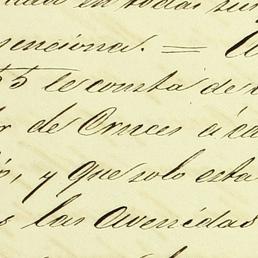 en todas su
menciona. = 
55 le consta de
de Cruces á ca
y que solo esta
s las avenidas